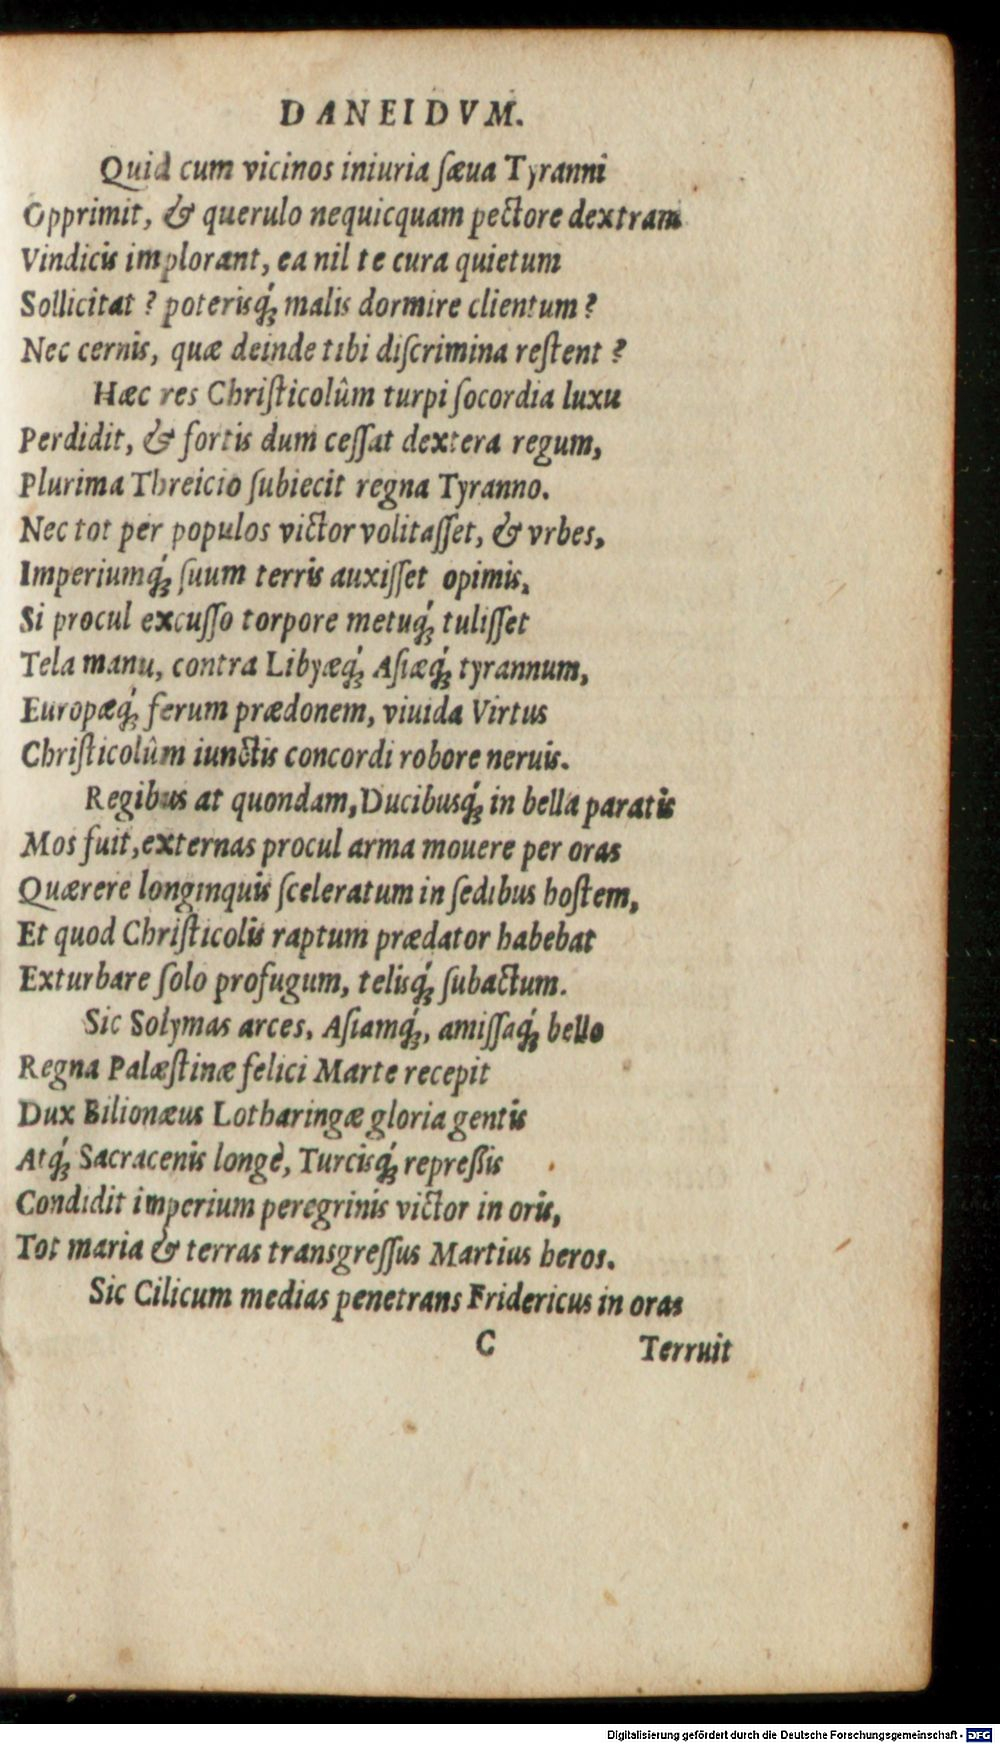 DANEIDVM.
Quid cum vicinos iniuria ſæua Tyranni
Opprimit, & querulo nequicquam pectore dextram
Vindicis implorant, ea nil te cura quietum
Sollicitat ? poterisq́ꝫ malis dormire clientum ?
Nec cernis, quæ deinde tibi diſcrimina reſtent ?
Hæc res Chriſticolûm turpi ſocordia luxu
Perdidit, & fortis dum ceſſat dextera regum,
Plurima Threicio ſubiecit regna Tyranno.
Nec tot per populos victor volitaſſet, & vrbes,
Imperiumq́ꝫ ſuum terris auxiſſet opimis,
Si procul excuſſo torpore metuq́ꝫ tuliſſet
Tela manu, contra Libyæq́ꝫ Aſiæq́ꝫ tyrannum,
Europæq́ꝫ ferum prædonem, viuida Virtus
Chriſticolûm iunctis concordi robore neruis.
Regibus at quondam, Ducibusq́ꝫ in bella paratis
Mos fuit, externas procul arma mouere per oras
Quærere longinquis ſceleratum in ſedibus hoſtem,
Et quod Chriſticolis raptum prædator habebat
Exturbare ſolo profugum, telisq́ꝫ ſubactum.
Sic Solymas arces, Aſiamq́ꝫ, amiſſaq́ꝫ bello
Regna Palæſtinæ felici Marte recepit
Dux Bilionæus Lotharingæ gloria gentis
Atq́ꝫ Sacracenis longè, Turcisq́ꝫ repreſſis
Condidit imperium peregrinis victor in oris,
Tot maria & terras transgreſſus Martius heros.
Sic Cilicum medias penetrans Fridericus in oras
C Terruit
Digitalisierung gefördert durch die Deutsche Forschungsgemeinschaft - DFG